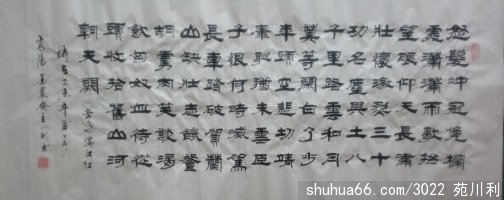 怒髮冲冠凭欄
處瀟瀟雨歇抬
望眼仰天長嘯
壯懷激烈三十
功名塵與土八
千里路雲和月
莫等閒白了少
年頭空悲切靖
康恥猶未雪臣
子恨何時滅駕
長車踏破賀蘭
山缺壯志飢餐
胡虜肉笑談渴
飲匈奴血待從
頭收拾舊山河
朝天闕
岳飛 滿江紅
shuhua66.com/3022 苑川利